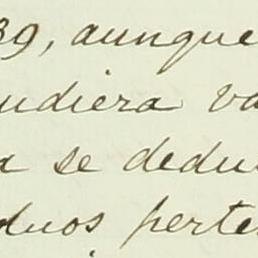 39, aunque
udiera va
a se dedu
duos perte